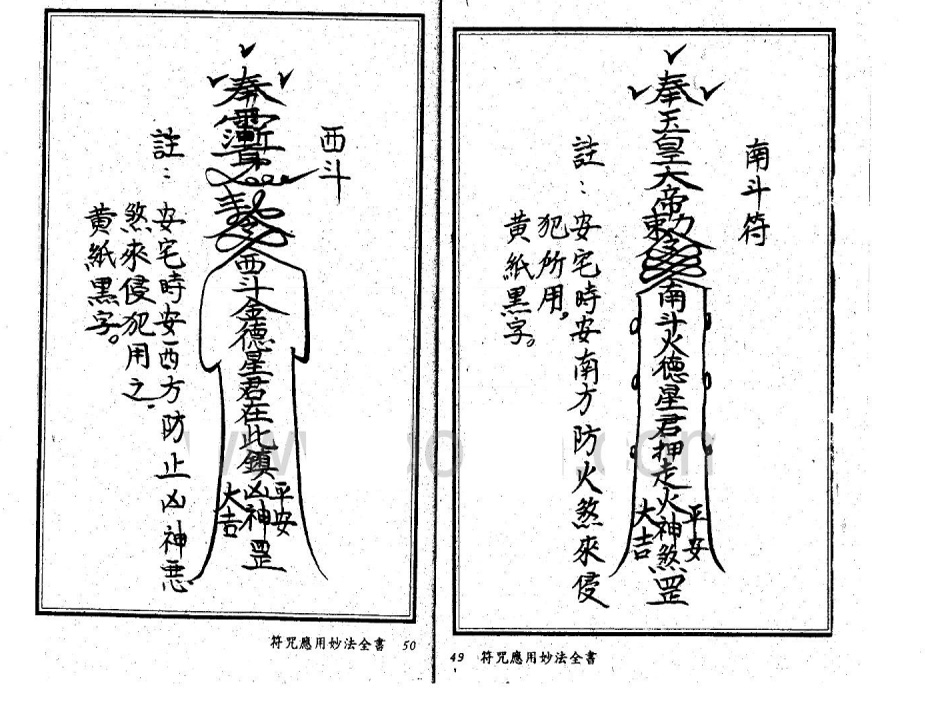 南斗符
奉玉皇大帝敕令南斗火德星君押走火神煞罡
平安
大吉
註：安宅時安南方防火煞來侵
犯所用，
黃紙黑字。
49 符咒應用妙法全書
西斗
奉
西斗金德星君在此鎮凶神罡
平安
大吉
註：安宅時安西方防止凶神惡
煞來侵犯用之.
黃紙黑字。
符咒應用妙法全書 50